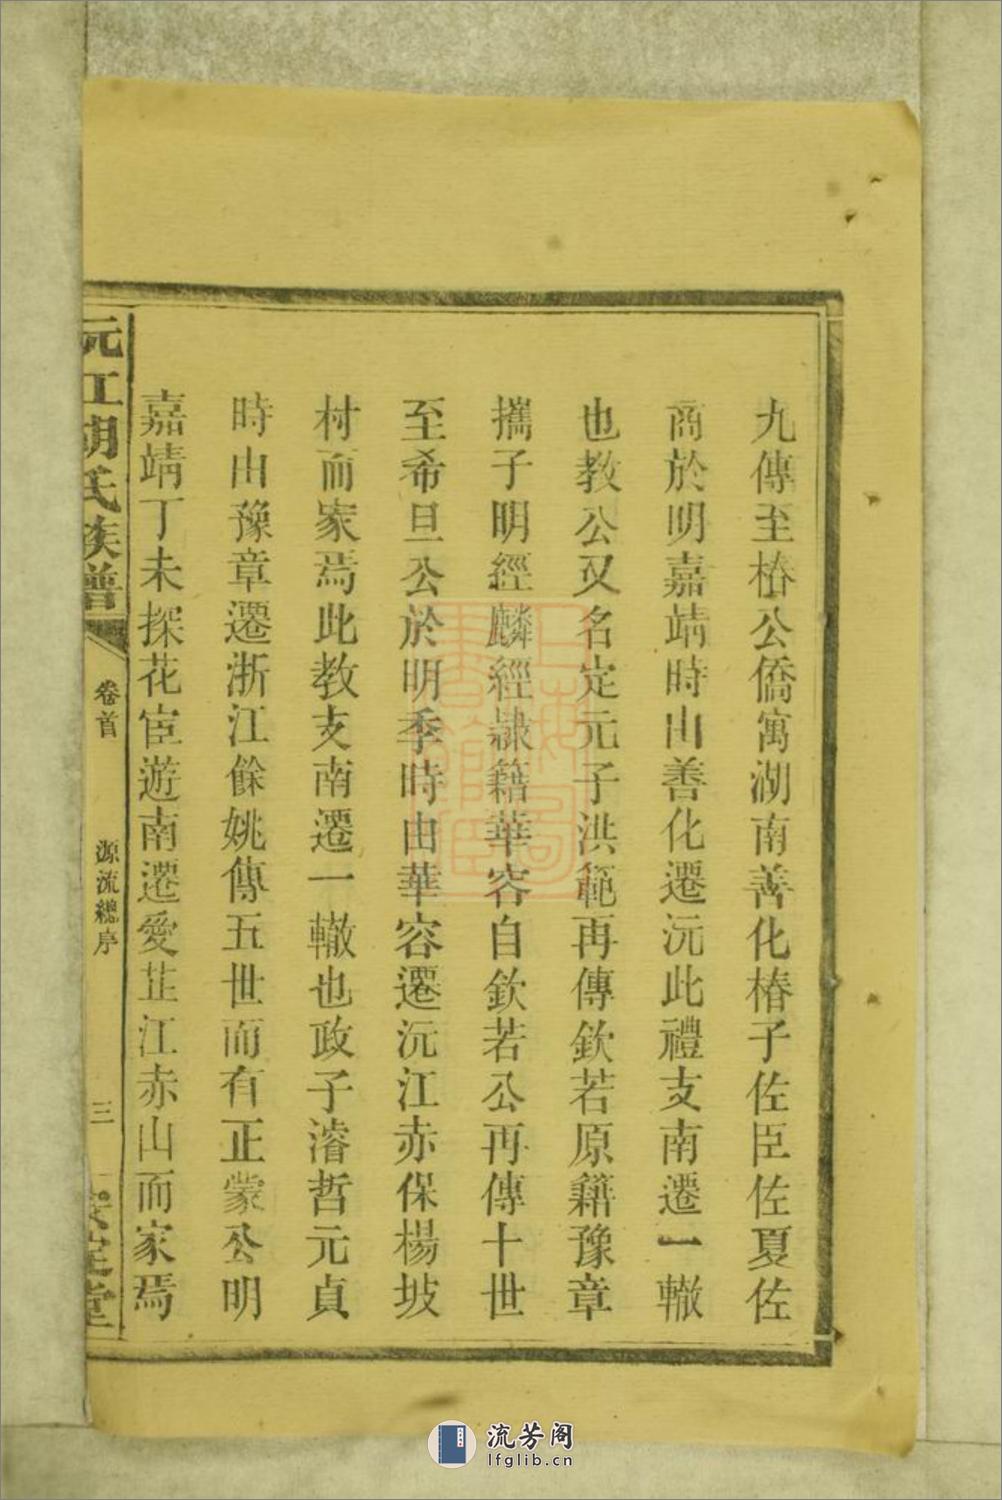 九傳至椿公僑寓湖南善化椿子佐臣佐夏佐
商於明嘉靖時由善化遷沅此禮支南遷一轍
也教公又名定元子洪範再傳欽若原籍豫章
攜子明經麟經隸籍華容自欽若公再傳十世
至希旦公於明季時由華容遷沅江赤保楊坡
村而家焉此教支南遷一轍也政子濬哲元貞
時由豫章遷浙江餘姚傳五世而有正蒙公明
嘉靖丁未探花宦遊南遷愛芷江赤山而家焉
沅江胡氏族譜
卷首
源流總序
三
安定堂
流芳阁
lfglib.cn